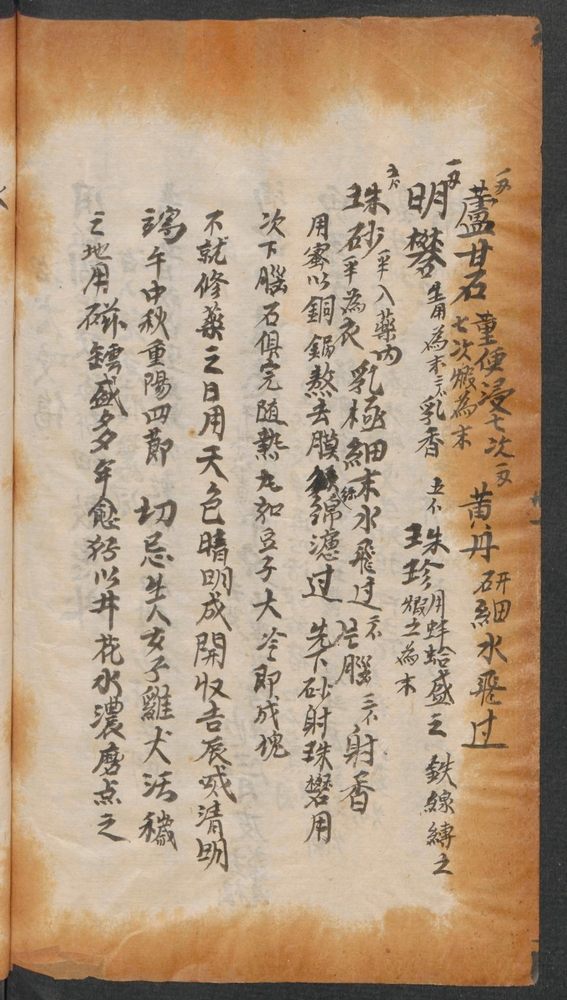 一两 蘆甘石 童便浸七次 一两 黄丹 研細水飛过
七次煅為末
一两 明礬 生用為末 三分 乳香 五分 珠珍 用蚌蛤盛之 鉄線縛之
煅之為末
五分 珠砂 半入藥内 半為衣 乳極細末水飛过 片腦 三分 射香
用蜜以銅鍋熬去膜 綿濾过 先下砂射珠礬用
次下腦石俱完随熱丸如豆子大冷即成塊
不就修藥之日用天色晴明成開收吉辰或清明
端午中秋重陽四節 切忌生人女子雞犬活穢
之地用磁罐盛多年愈好以井花水濃磨点之